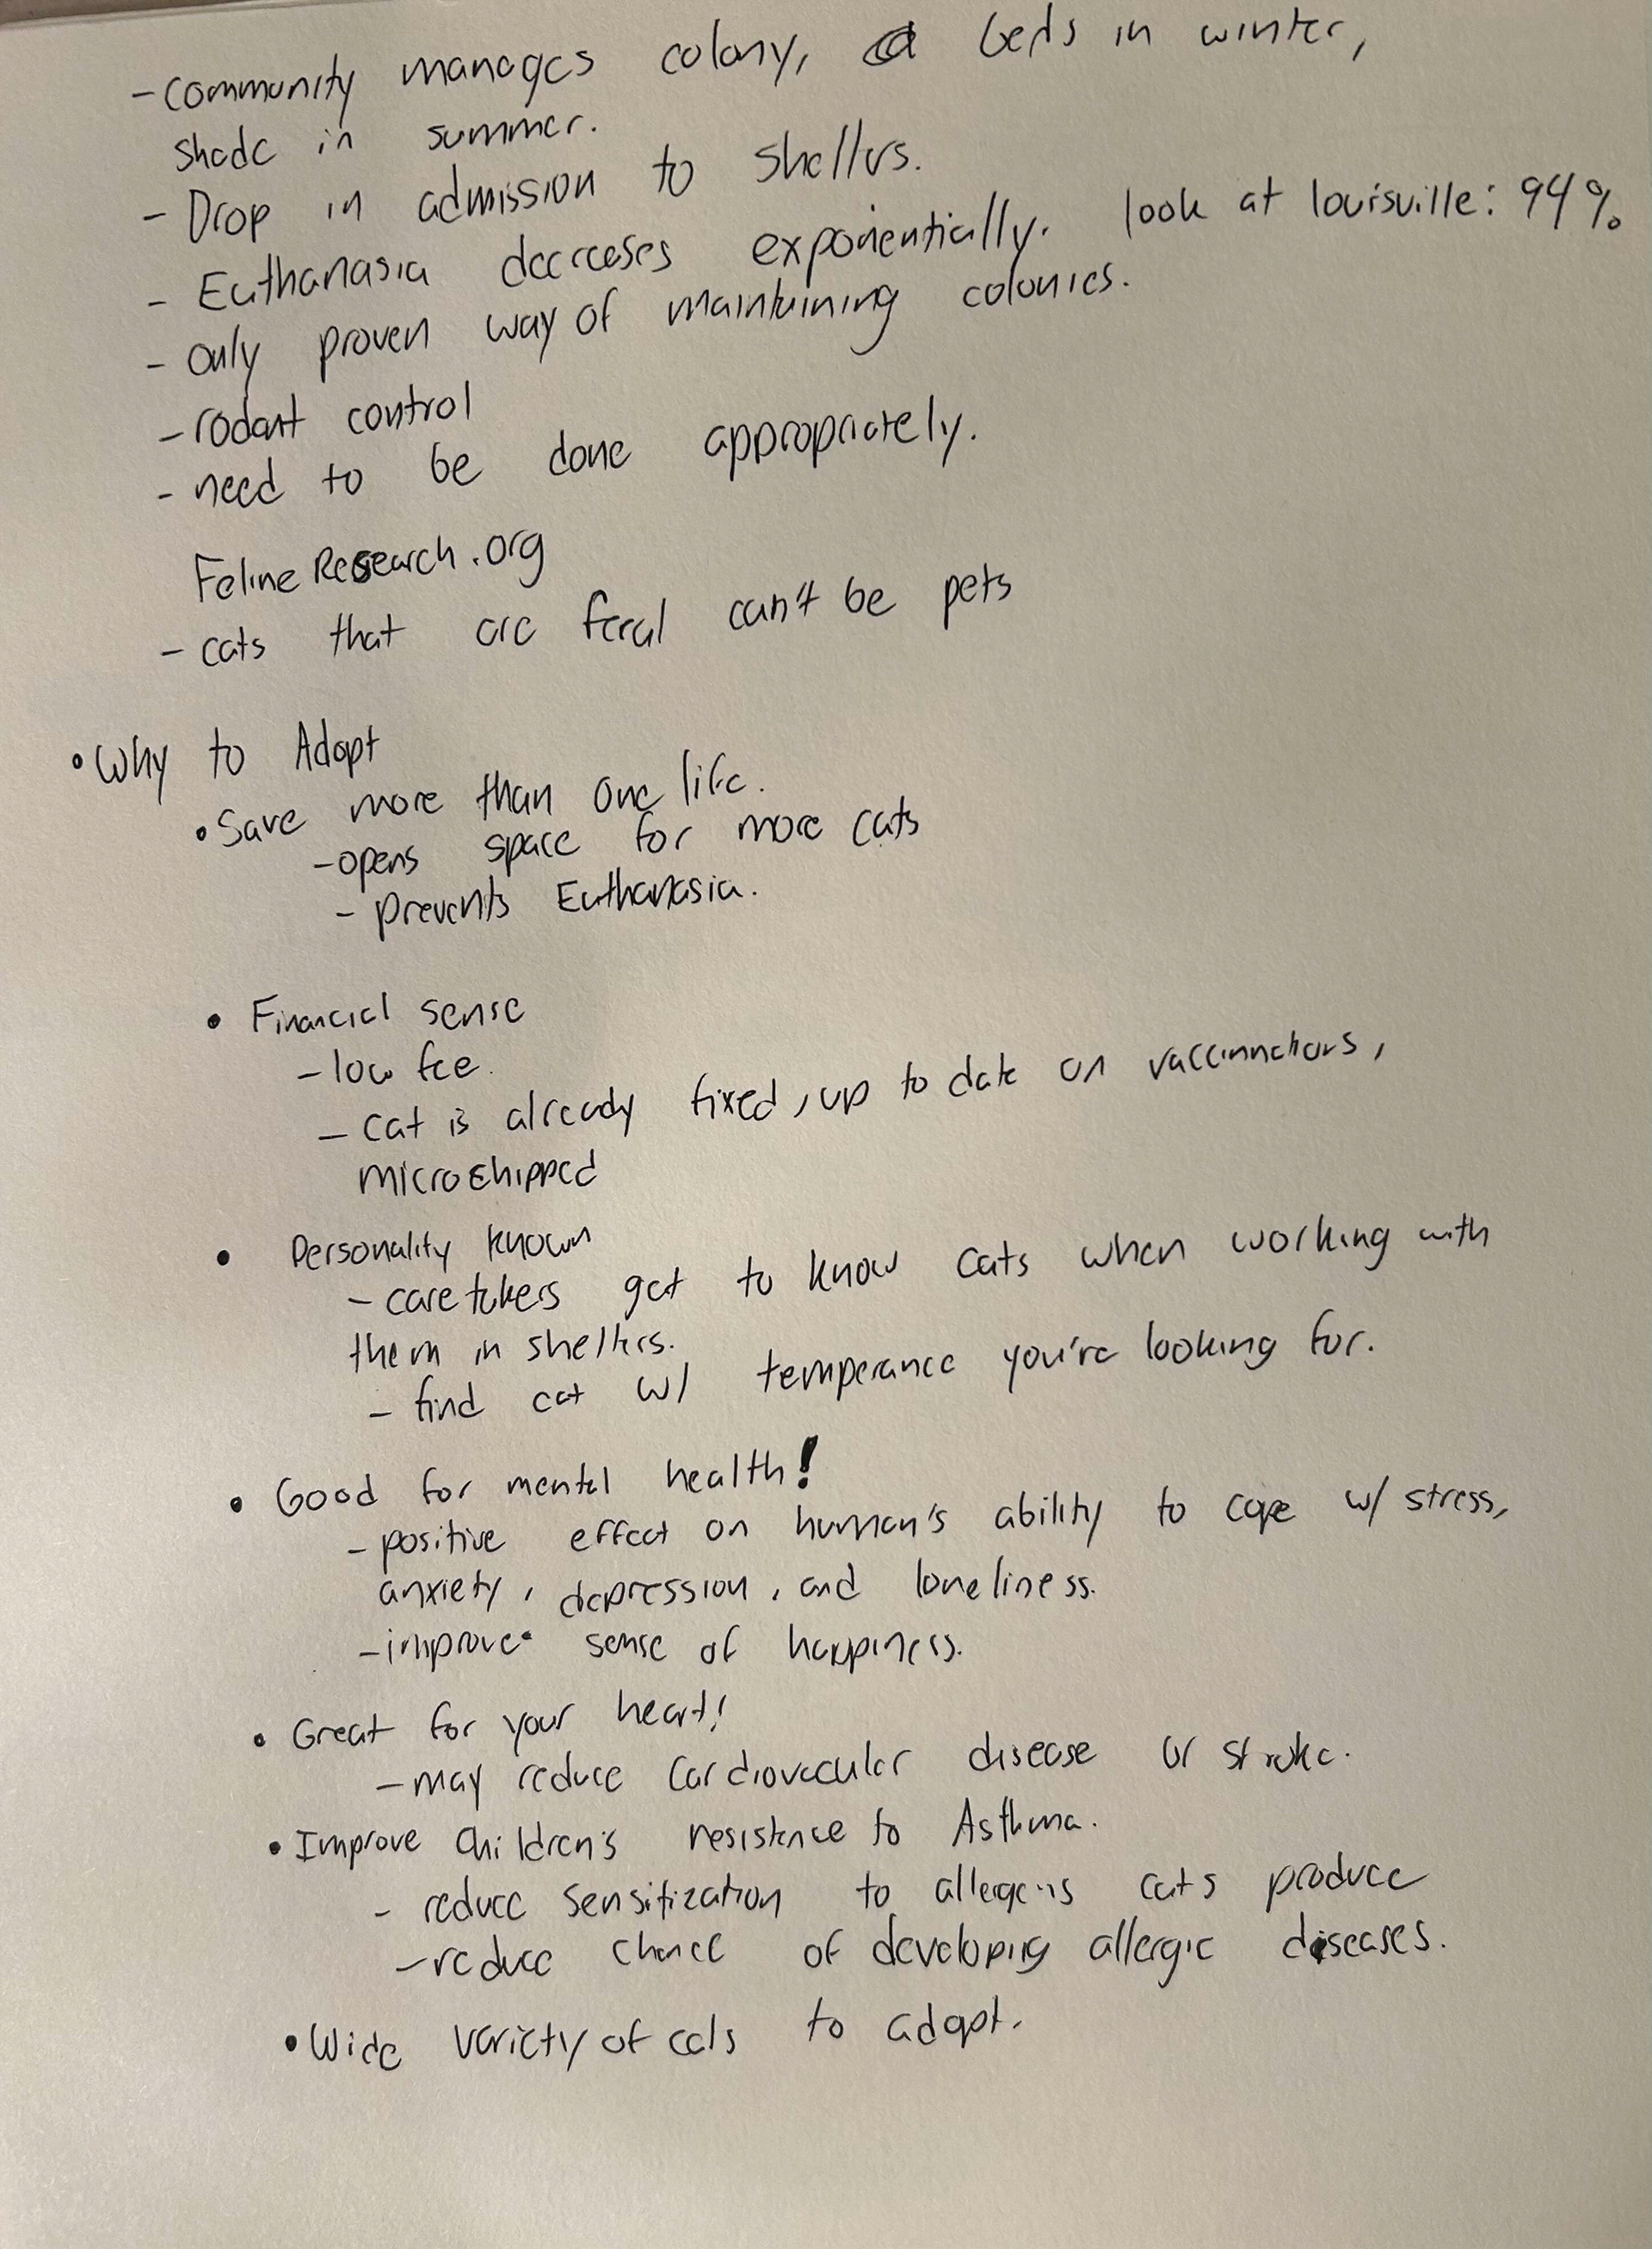 - community manages colony, beds in winter,
shade in summer.
- Drop in admission to shelters.
- Euthanasia decreeses exponentially. look at louisville: 94%
- only proven way of maintaining colonies.
- rodant control
- need to be done appropriately.
Feline Research.org
- cats that are feral can't be pets
• Why to Adopt
• Save more than one life.
- opens space for more cats
- prevents Euthanasia.
• Financial sense
- low fee.
- cat is already fixed, up to date on vaccinnations,
microchipped
• Personality known
- caretakers get to know cats when working with
them in shelters.
- find cat w/ temperance you're looking for.
• Good for mental health!
- positive effect on human's ability to cope w/ stress,
anxiety, depression, and loneliness.
- improve sense of happiness.
• Great for your heart!
- may reduce cardiovacular disease or stroke.
• Improve Children's resistence to Asthma.
- reduce sensitization to allergens cats produce
- reduce chance of developing allergic diseases.
• Wide variety of cats to adopt.